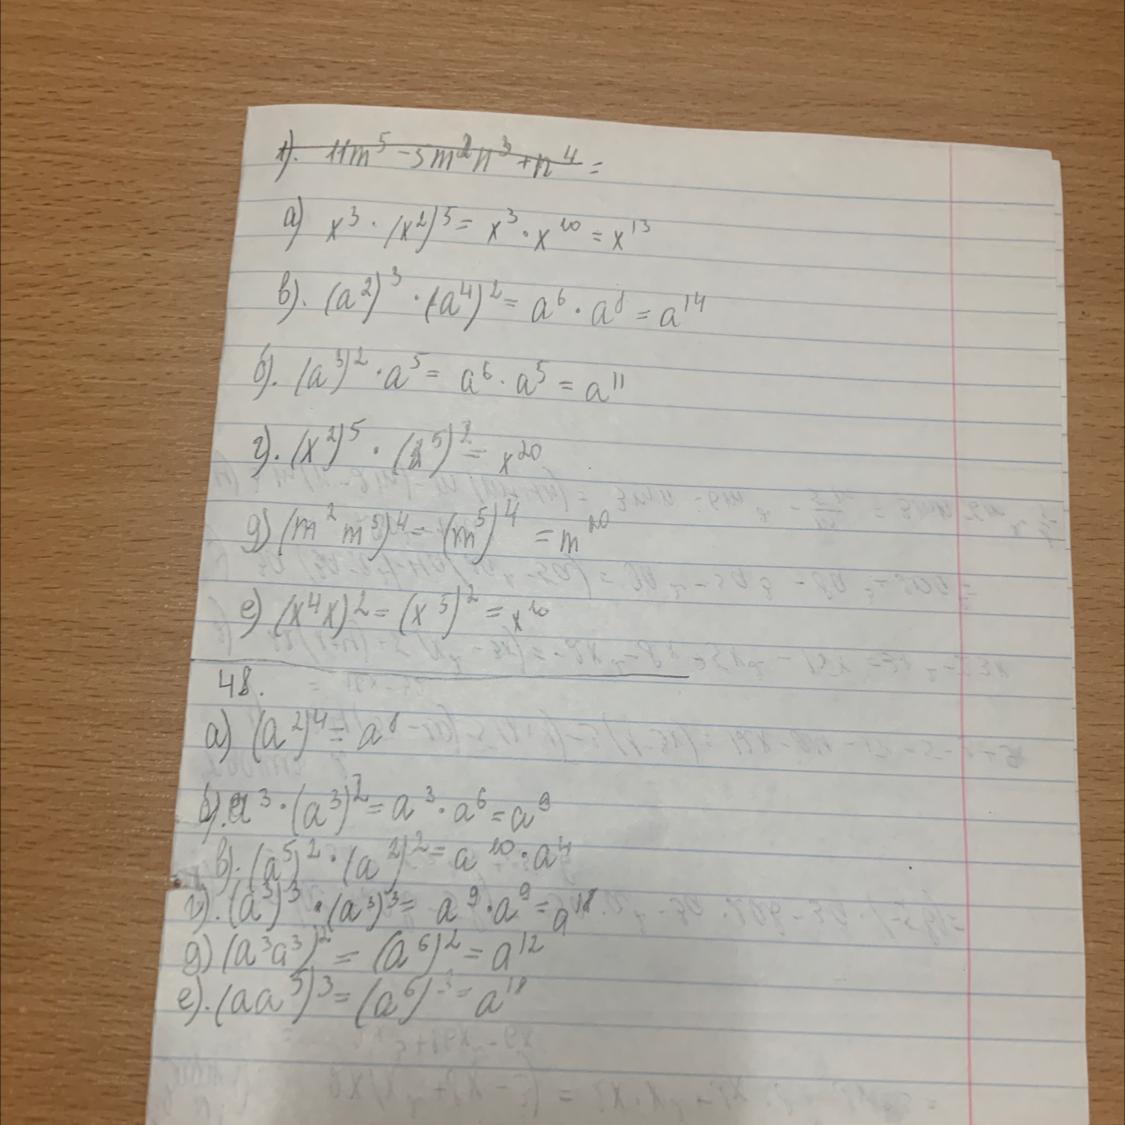 1). 11m⁵ - 3m²n³ + n⁴ =
а) x³ · (x²)⁵ = x³ · x¹⁰ = x¹³
в). (a²)³ · (a⁴)² = a⁶ · a⁸ = a¹⁴
б). (a³)² · a⁵ = a⁶ · a⁵ = a¹¹
г). (x²)⁵ · (x⁵)² = x²⁰
д) (m² m³)⁴ = (m⁵)⁴ = m²⁰
е) (x⁴x)² = (x⁵)² = x¹⁰
48.
а) (a²)⁴ = a⁸
б). a³ · (a³)² = a³ · a⁶ = a⁹
в). (a⁵)² · (a²)² = a¹⁰ · a⁴
г). (a³)³ · (a³)³ = a⁹ · a⁹ = a¹⁸
д) (a³a³)² = (a⁶)² = a¹²
е). (aa⁵)³ = (a⁶)³ = a¹⁸